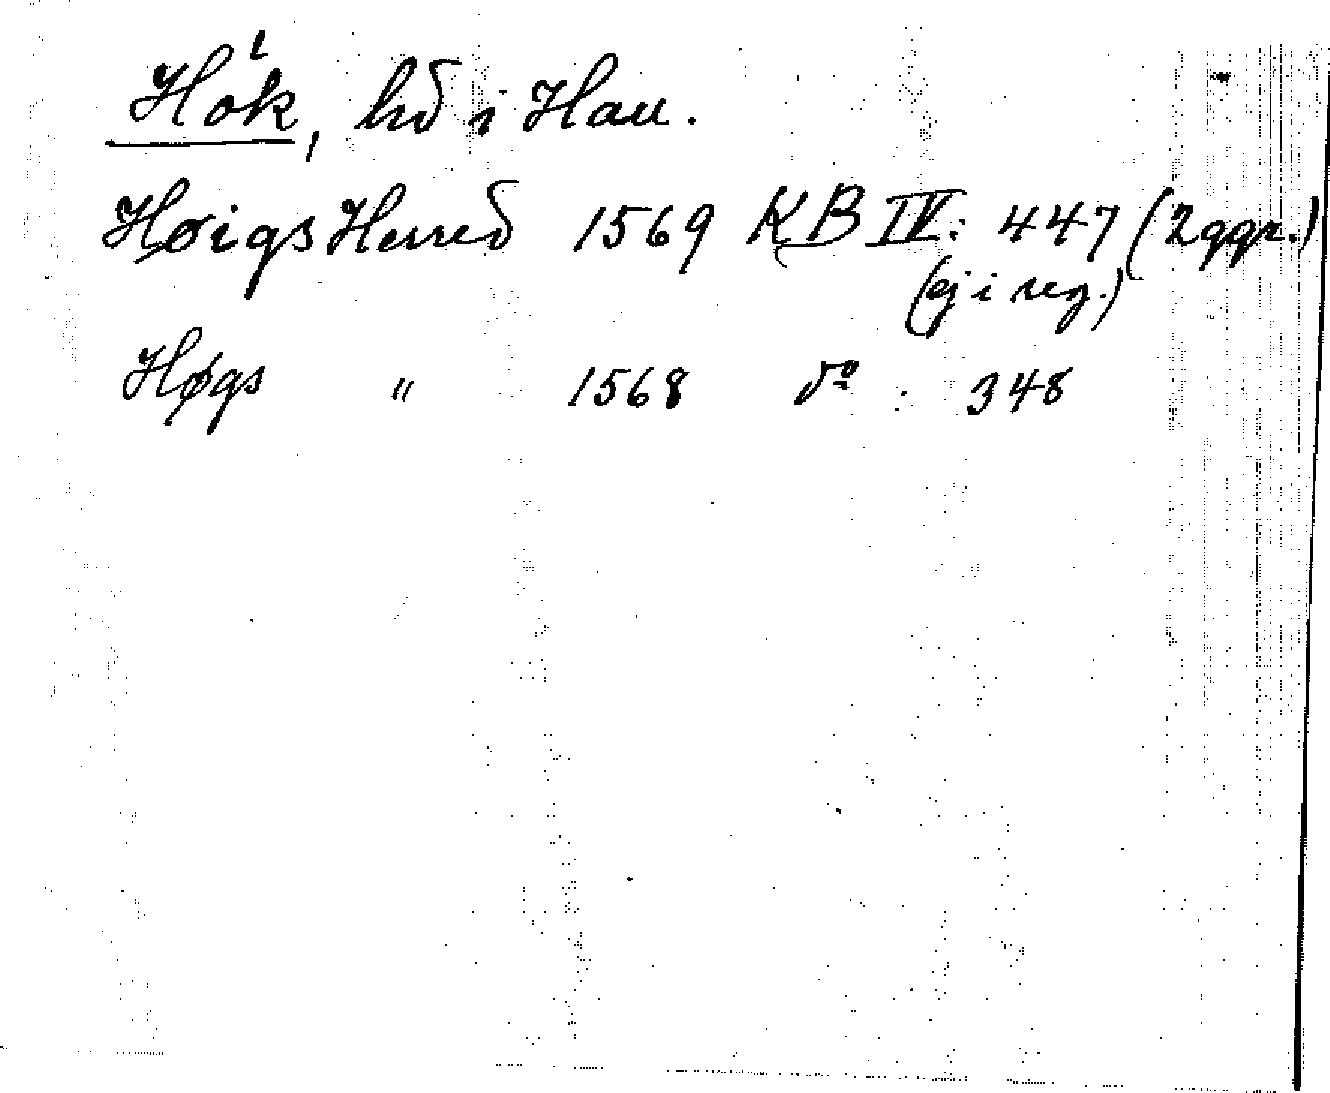 Hök, hd i Hall.
Høigs Herred 1569 KB IV: 447 (2 ggr.)
(ej i reg.)
Høgs " 1568 do : 348